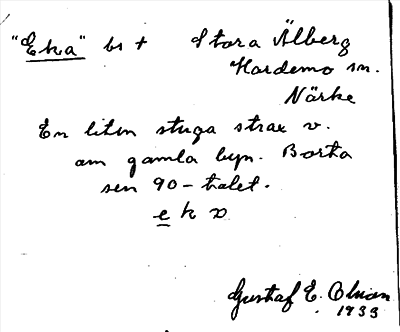 "Eka" bs + Stora Älberg
Hardemo sn.
Närke
En liten stuga strax v.
om gamla byn. Borta
sen 90-talet.
e k a
Gustaf E. Olson
1933